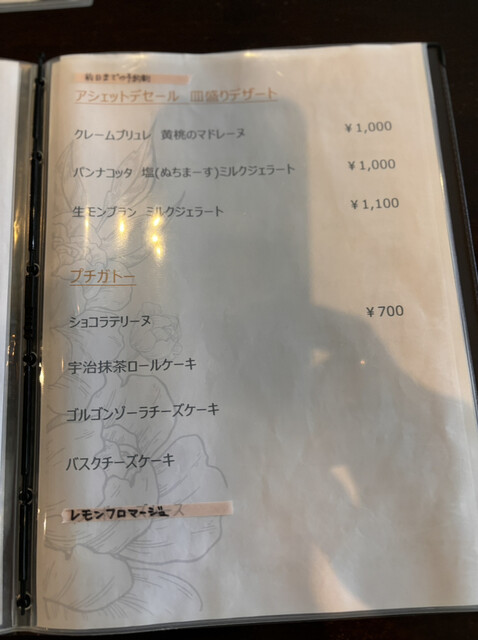 前日までの予約制
アシェットデセール 皿盛りデザート
クレームブリュレ 黄桃のマドレーヌ ￥1,000
パンナコッタ 塩(ぬちまーす)ミルクジェラート ￥1,000
生モンブラン ミルクジェラート ￥1,100
プチガトー
ショコラテリーヌ ￥700
宇治抹茶ロールケーキ
ゴルゴンゾーラチーズケーキ
バスクチーズケーキ
レモンフロマージュ